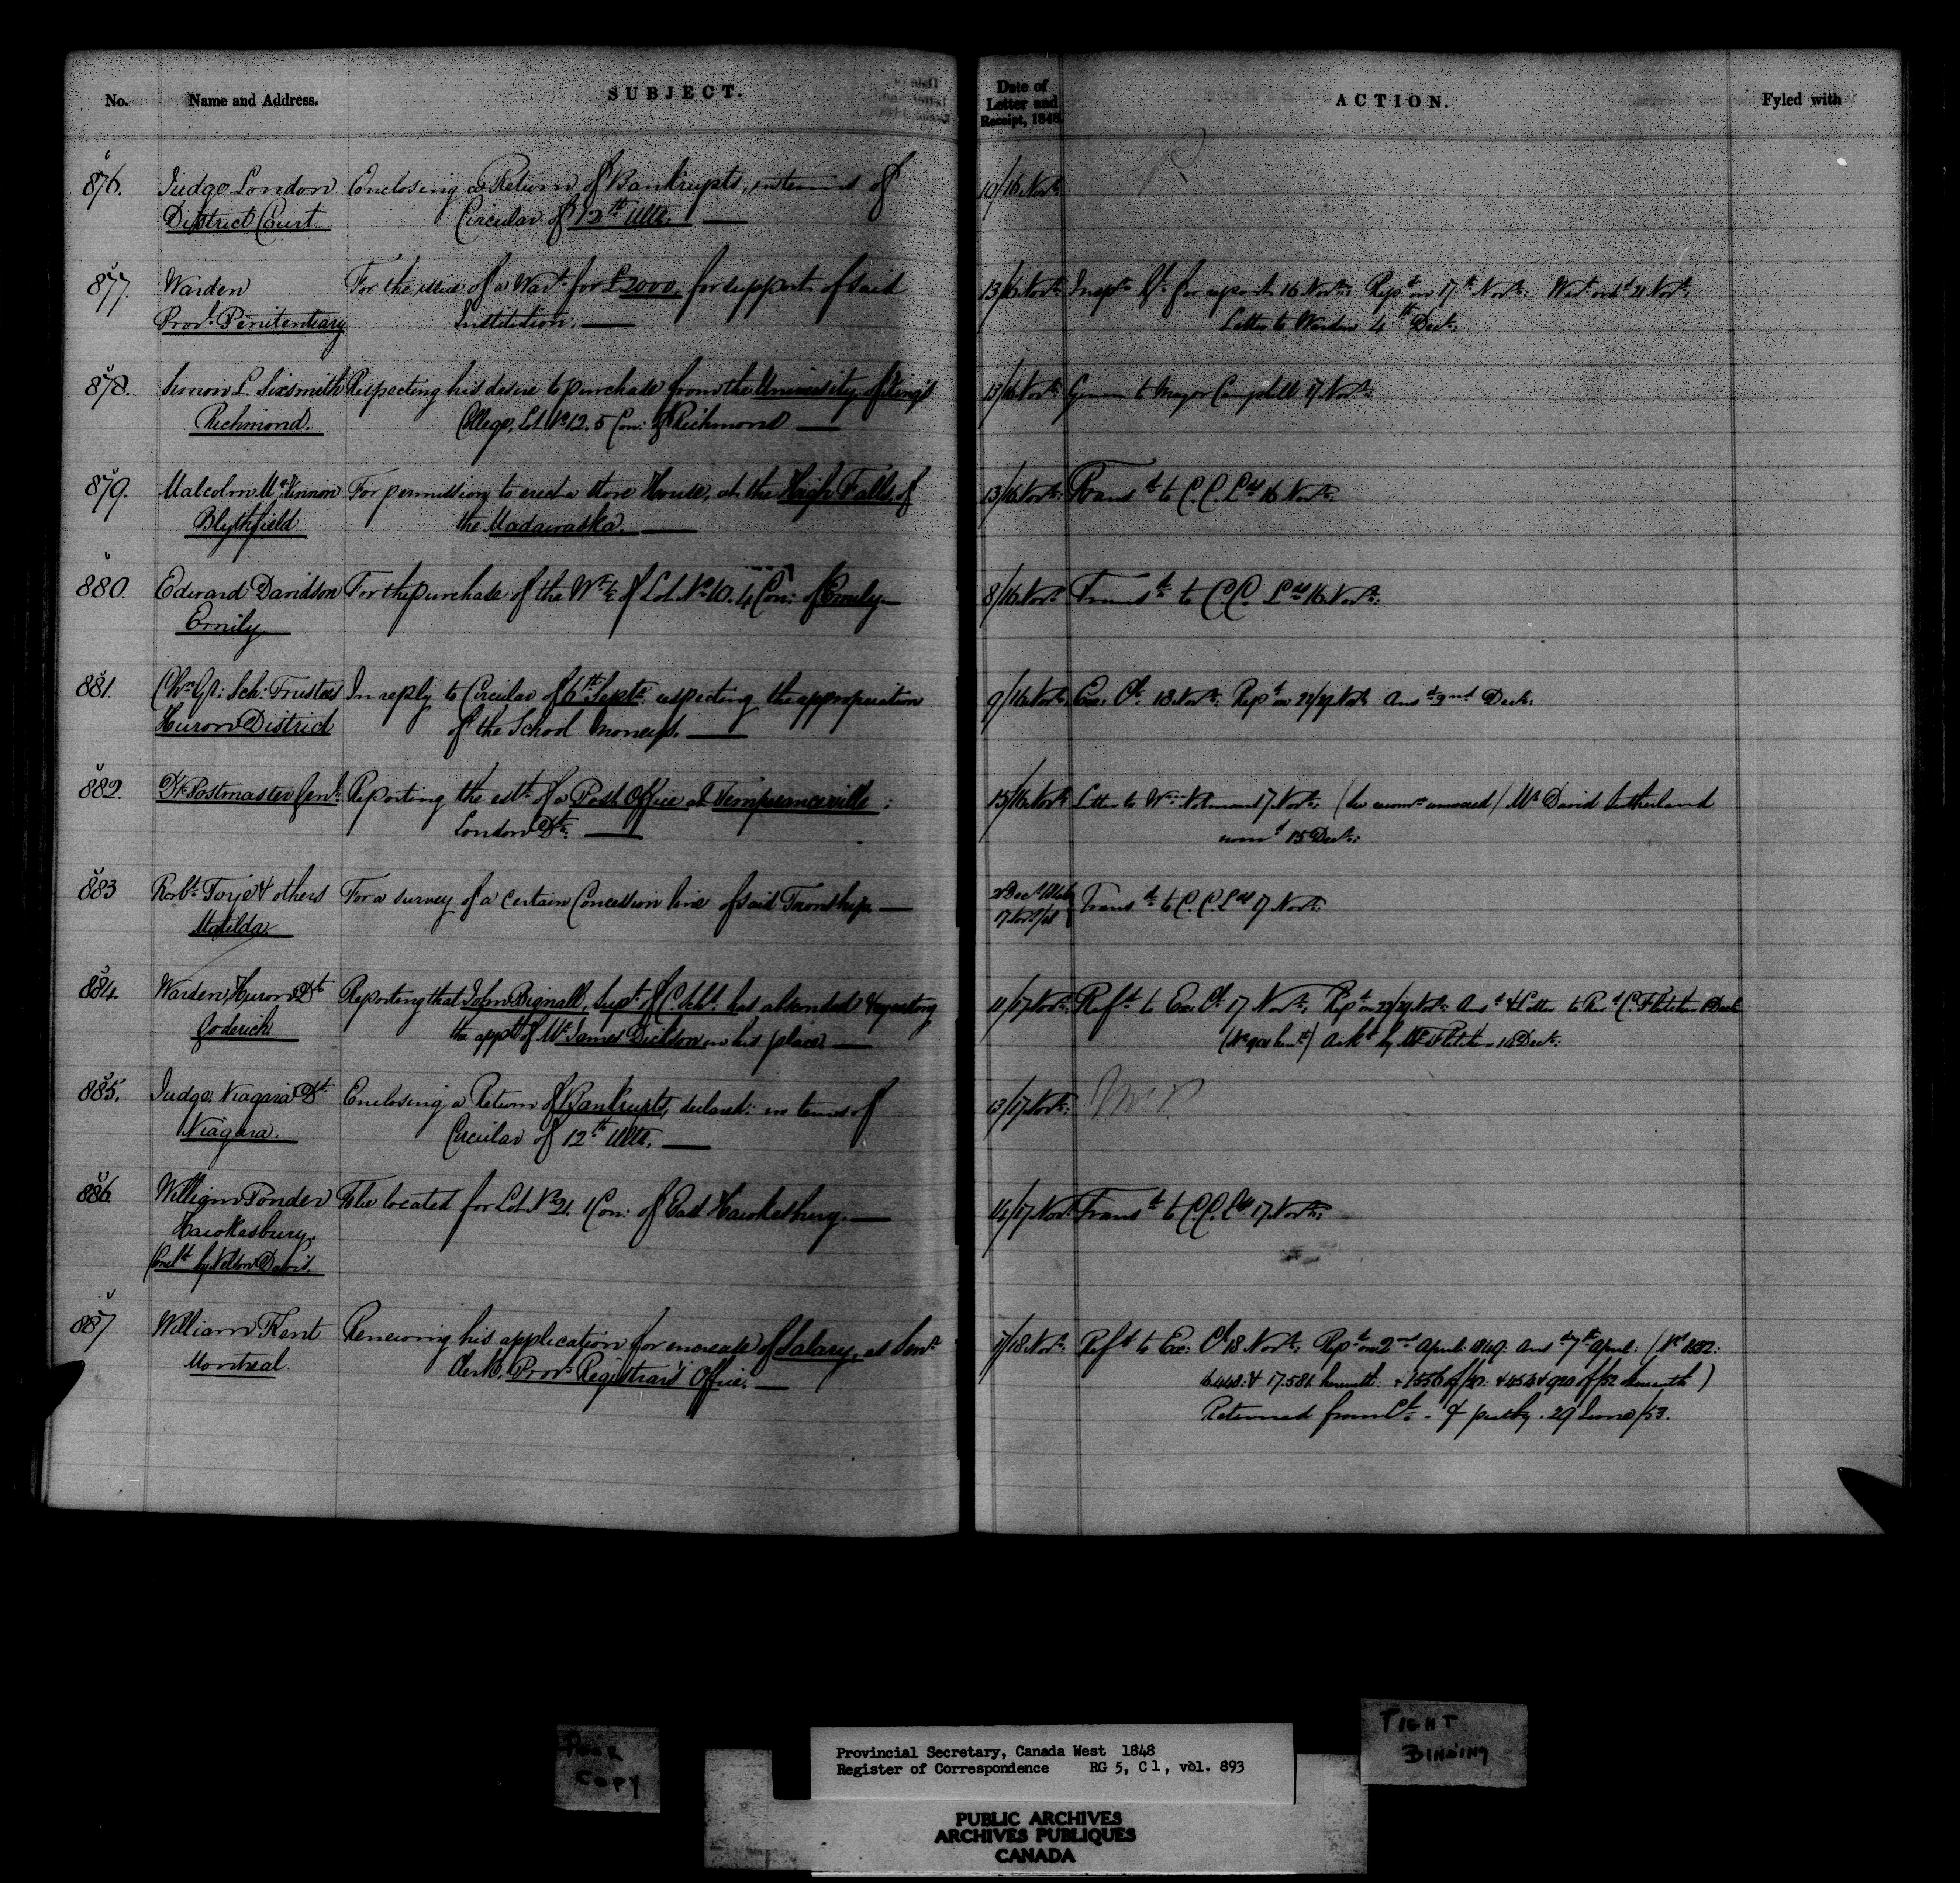 No. Name and Address. SUBJECT. Date of Letter and Receipt, 1848. ACTION. Fyled with
876. Judge London Enclosing a Return of Bankrupts, in terms of 10/16 Novr: R
District Court. Circular of 12th Ulto.
877. Warden For the issue of a Wart for £2000, for support of said 13/16 Novr: Inspr Gl for report 16 Novr: Repd on 17th Novr: Wart ordd 21 Novr:
Provl Penitentiary Institution. Letter to Warden 4th Decr:
878. L. Sixsmith Respecting his desire to purchase from the University of King's 13/16 Novr: Given to Major Campbell 17 Novr:
Richmond. College, Lot No 12. 5 Con: of Richmond
879. Malcolm McKinnon For permission to erect a Store House, at the High Falls of 13/16 Novr: Transd to C.C. Lds 16 Novr:
Blythfield the Madawaska.
880. Edward Davidson For the purchase of the Wt ½ of Lot No 10. 4 Con: of Emily 8/16 Novr: Transd to C.C. Lds 16 Novr:
Emily
881. Chn Gl: Sch: Trustees In reply to Circular of 6th Septr respecting the appropriation 9/16 Novr: Exe: Cl: 18 Novr: Repd on Novr Ansd 2nd Decr:
Huron District of the School moneys.
882. Dy Postmaster Genl: Reporting the estt of a Post Office at Temperanceville: 15/16 Novr: Letter to Wm Notman 17 Novr: Mr David Sutherland
London Dt: nomd 15 Decr:
883 Robt Toye & others For a survey of a certain Concession line of said Township 17 Novr/48 Transd to C.C. Lds 17 Novr:
Matilda
884. Warden, Huron Dt Reporting that John Bignall, Supt of C. Schls. has absconded & reporting 11/17 Novr: Refd to Exe Cl 17 Novr: Repd on Novr: Ansd & Letter to Revd C. Fletcher Decr
Goderich the appt of Mr James Dickson in his place. Ackd by Mr Fletcher 14 Decr:
885. Judge, Niagara Dt Enclosing a Return of Bankrupts, declard: in terms of 13/17 Novr:
Niagara. Circular of 12th Ulto.
886. William Ponder To be located for Lot No 21. 1 Con: of East Hawkesbury. 14/17 Novr: Transd to C.C. Lds 17 Novr:
Hawkesbury.
by Nelson Davis.
887 William Kent Renewing his application for increase of Salary, as Senr 17/18 Novr: Refd to Exe: Cl 18 Novr: Repd on 2nd April 1849: Ansd 7th April:
Montreal. Clerk, Provl Registrar's Office.
Returned from Cl - & put by. 29 June/53.
POOR COPY
TIGHT BINDING
Provincial Secretary, Canada West 1848
Register of Correspondence RG 5, C 1, vol. 893
PUBLIC ARCHIVES
ARCHIVES PUBLIQUES
CANADA